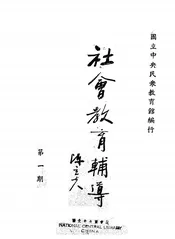 國立中央民眾教育館編行
社會教育輔導
陳立夫
第一期
NATIONAL CENTRAL LIBRARY